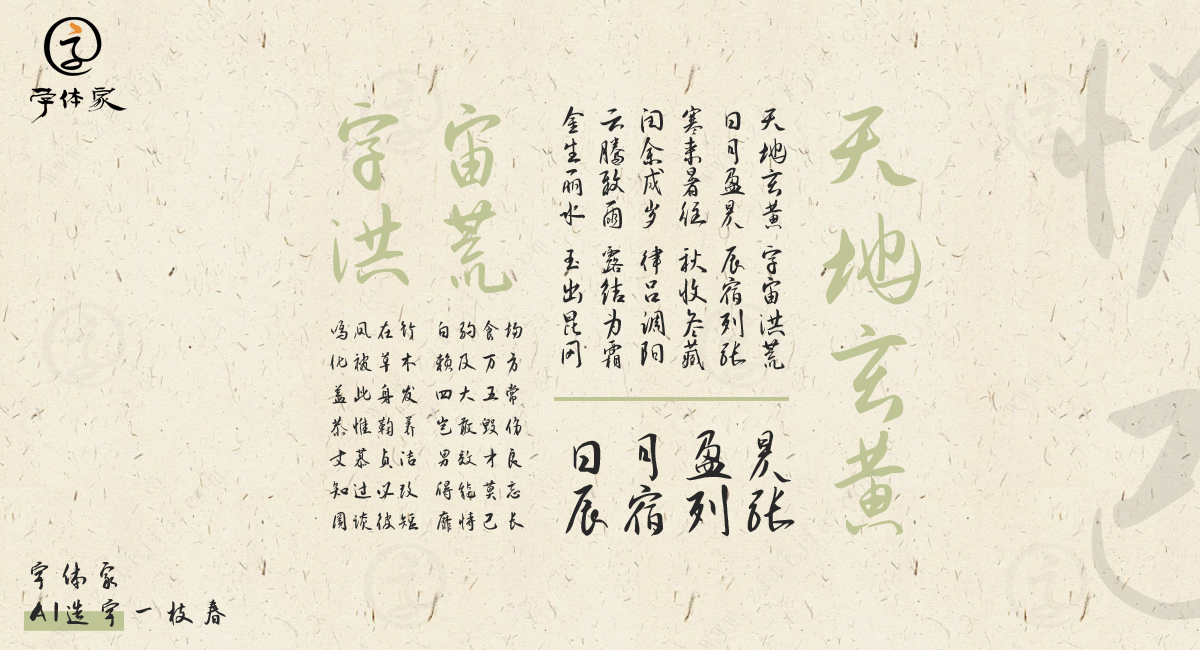 字
字体家
天地玄黄
天地玄黄 字宙洪荒
日月盈昃 辰宿列张
寒来暑往 秋收冬藏
闰余成岁 律吕调阳
云腾致雨 露结为霜
金生丽水 玉出昆冈
日月盈昃
辰宿列张
宙荒
字洪
场方常伤良忘长
食万五毁才莫己
驹及大敢效能恃
白赖四岂男得靡
竹木发养洁改短
在草身鞠贞必彼
凤被此惟慕过谈
鸣化盖恭丈知罔
字体家
AI造字一枝春